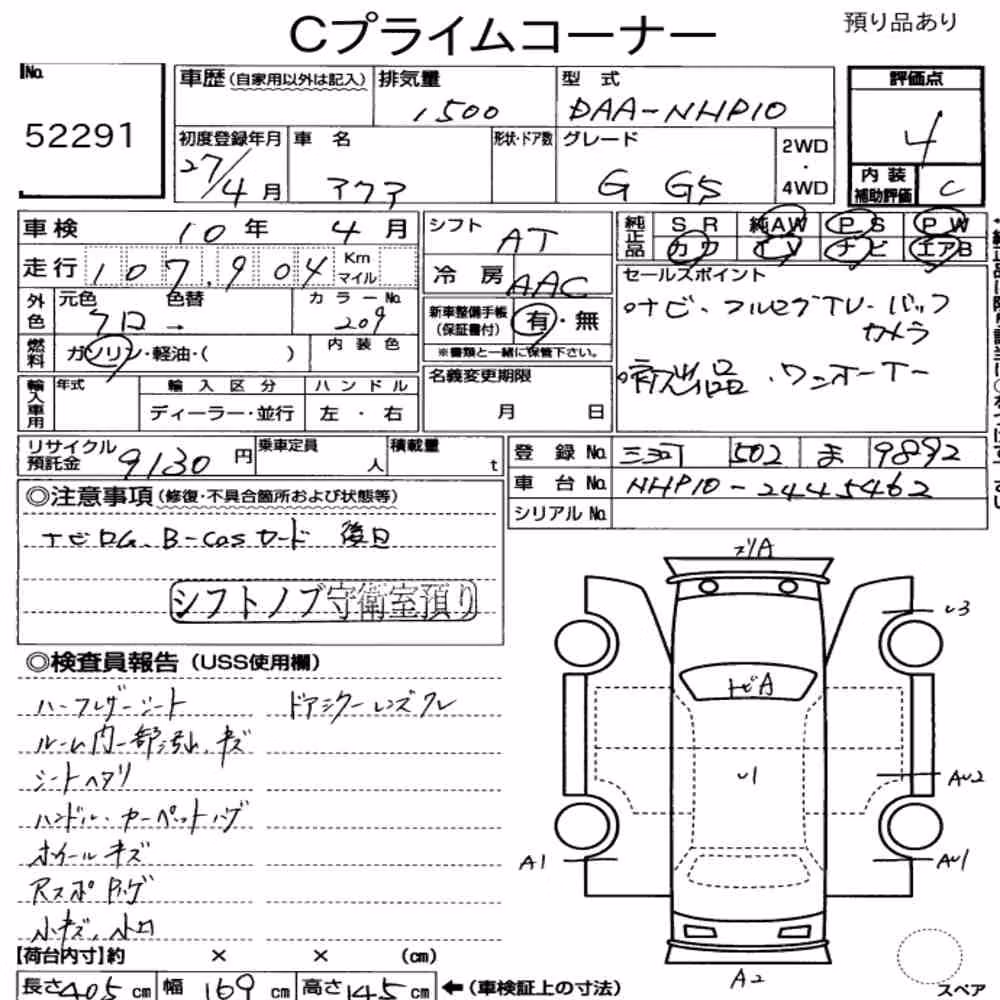 Cプライムコーナー
預り品あり
No.
52291
車歴(自家用以外は記入)
排気量
1500
型 式
DAA-NHP10
評価点
4
初度登録年月
27/4月
車 名
アクア
形状・ドア数
グレード
G GS
2WD
・
4WD
内装
補助評価
C
車検 10 年 4 月
シフト AT
純正品
SR 純AW PS PW
カワ TV ナビ エアB
走行 107,904 Km
マイル
冷房 AAC
セールスポイント
ナビ・フルセグTV・バック
カメラ
外色
元色 クロ → 色替
カラーNo. 209
新車整備手帳
(保証書付)
有・無
燃料
ガソリン・軽油・( )
内装色
※書類と一緒に保管下さい。
輸入車用
年式
輸入区分
ハンドル
ディーラー・並行
左・右
名義変更期限
月 日
・ワンオーナー
リサイクル
預託金
9130 円
乗車定員
人
積載量
t
登録No. 三河 502 ま 9892
車台No. NHP10-2445462
シリアルNo.
◎注意事項(修復・不具合箇所および状態等)
ナビROM、B-CASカード 後日
シフトノブ守衛室預り
◎検査員報告(USS使用欄)
ハーフレザーシート
ドアミラーレンズワレ
ルーム内一部汚れ、キズ
シートヘタリ
ハンドル・カーペットハゲ
ホイールキズ
Rスポ Pハゲ
小キズ、小凹
スリA
U3
トビA
U1
AU2
A1
AU1
A2
スペア
【荷台内寸】約 × × (cm)
長さ405cm 幅169cm 高さ145cm ←(車検証上の寸法)